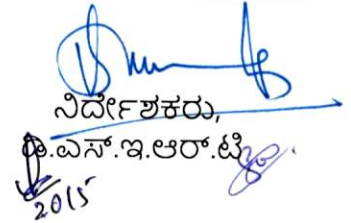 ನಿರ್ದೇಶಕರು,
ಡಿ.ಎಸ್.ಇ.ಆರ್.ಟಿ
2015